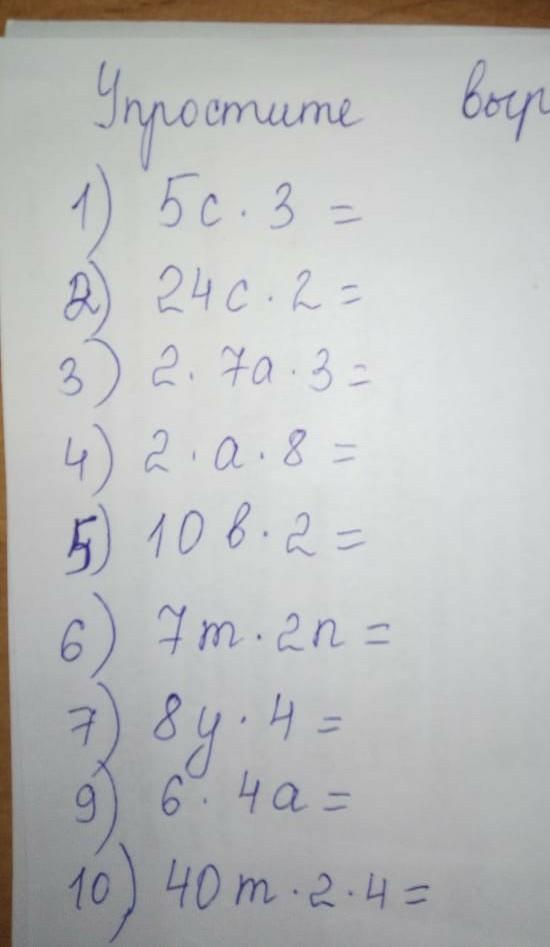 Упростите выр
1) 5c · 3 =
2) 24c · 2 =
3) 2 · 7a · 3 =
4) 2 · a · 8 =
5) 10в · 2 =
6) 7m · 2n =
7) 8y · 4 =
9) 6 · 4a =
10) 40m · 2 · 4 =